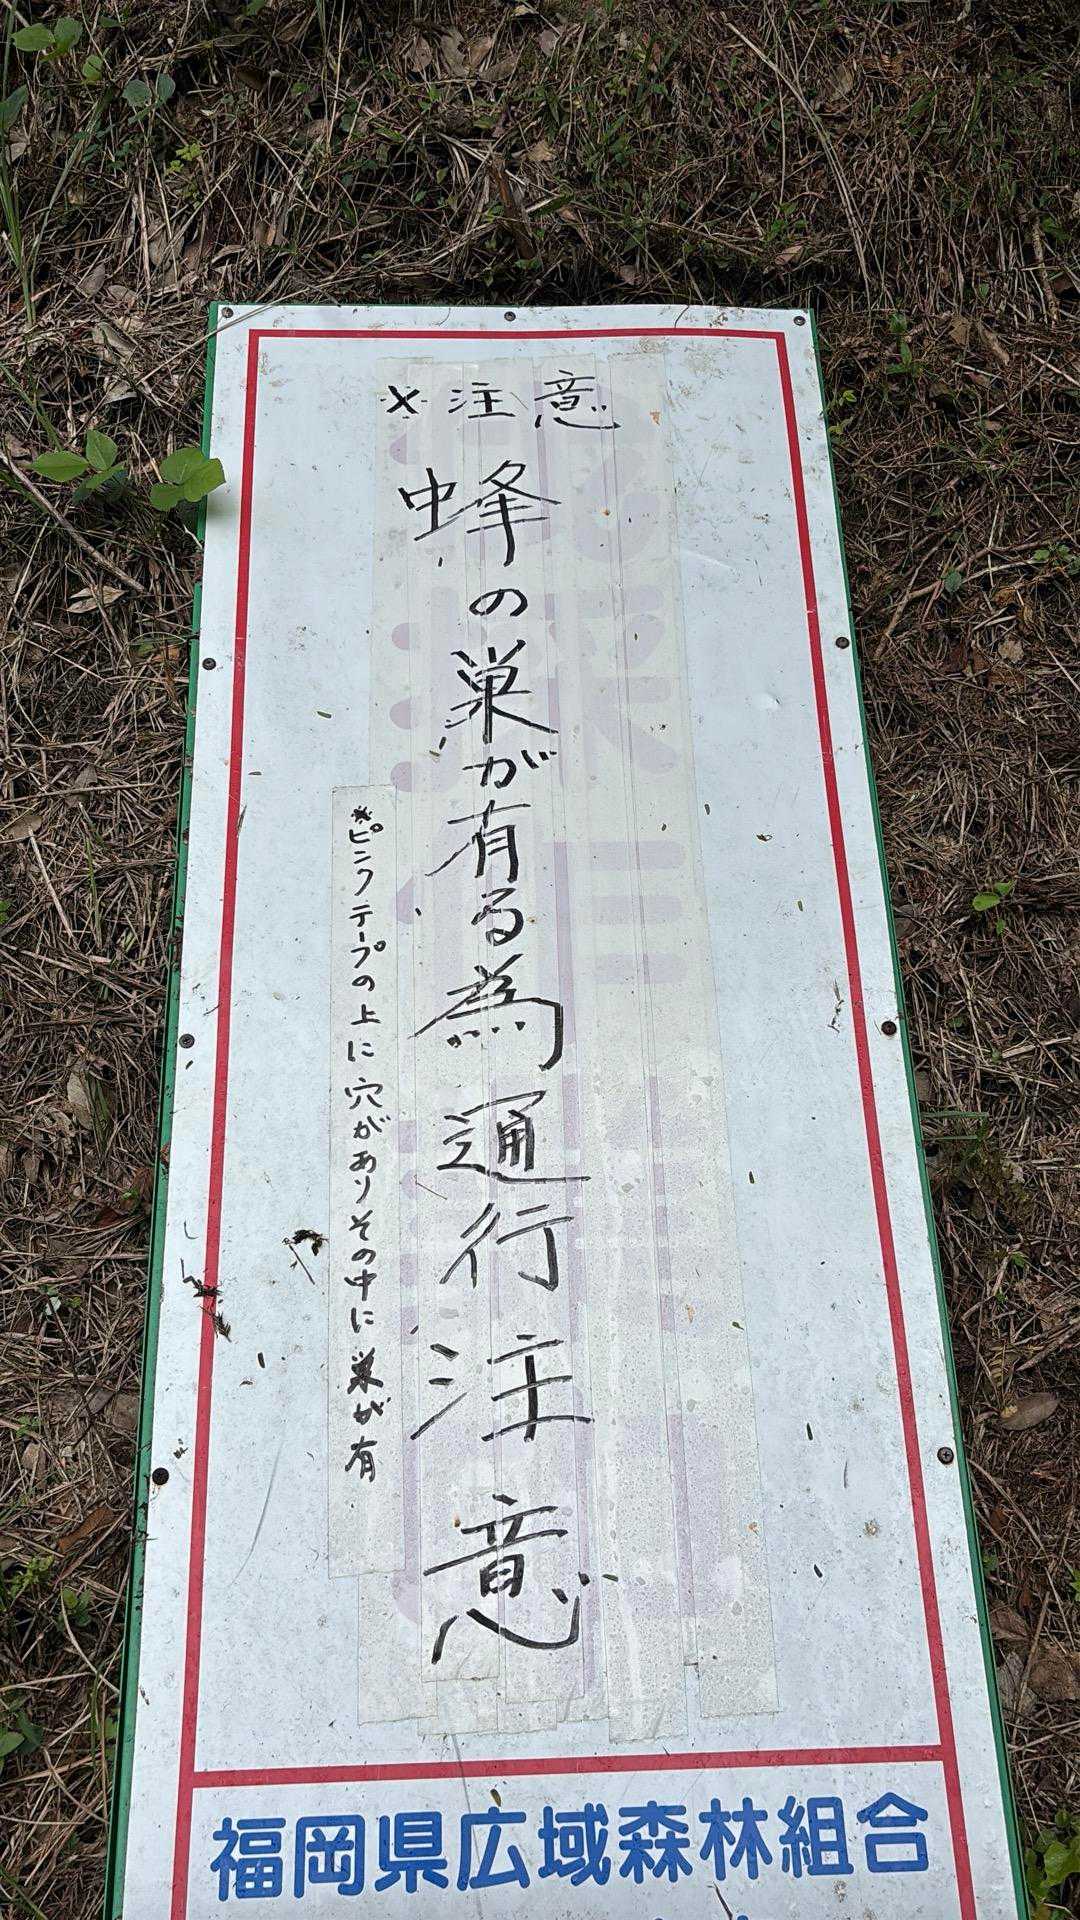 ※注意
蜂の巣が有る為通行注意
※ピンクテープの上に穴がありその中に巣が有
福岡県広域森林組合